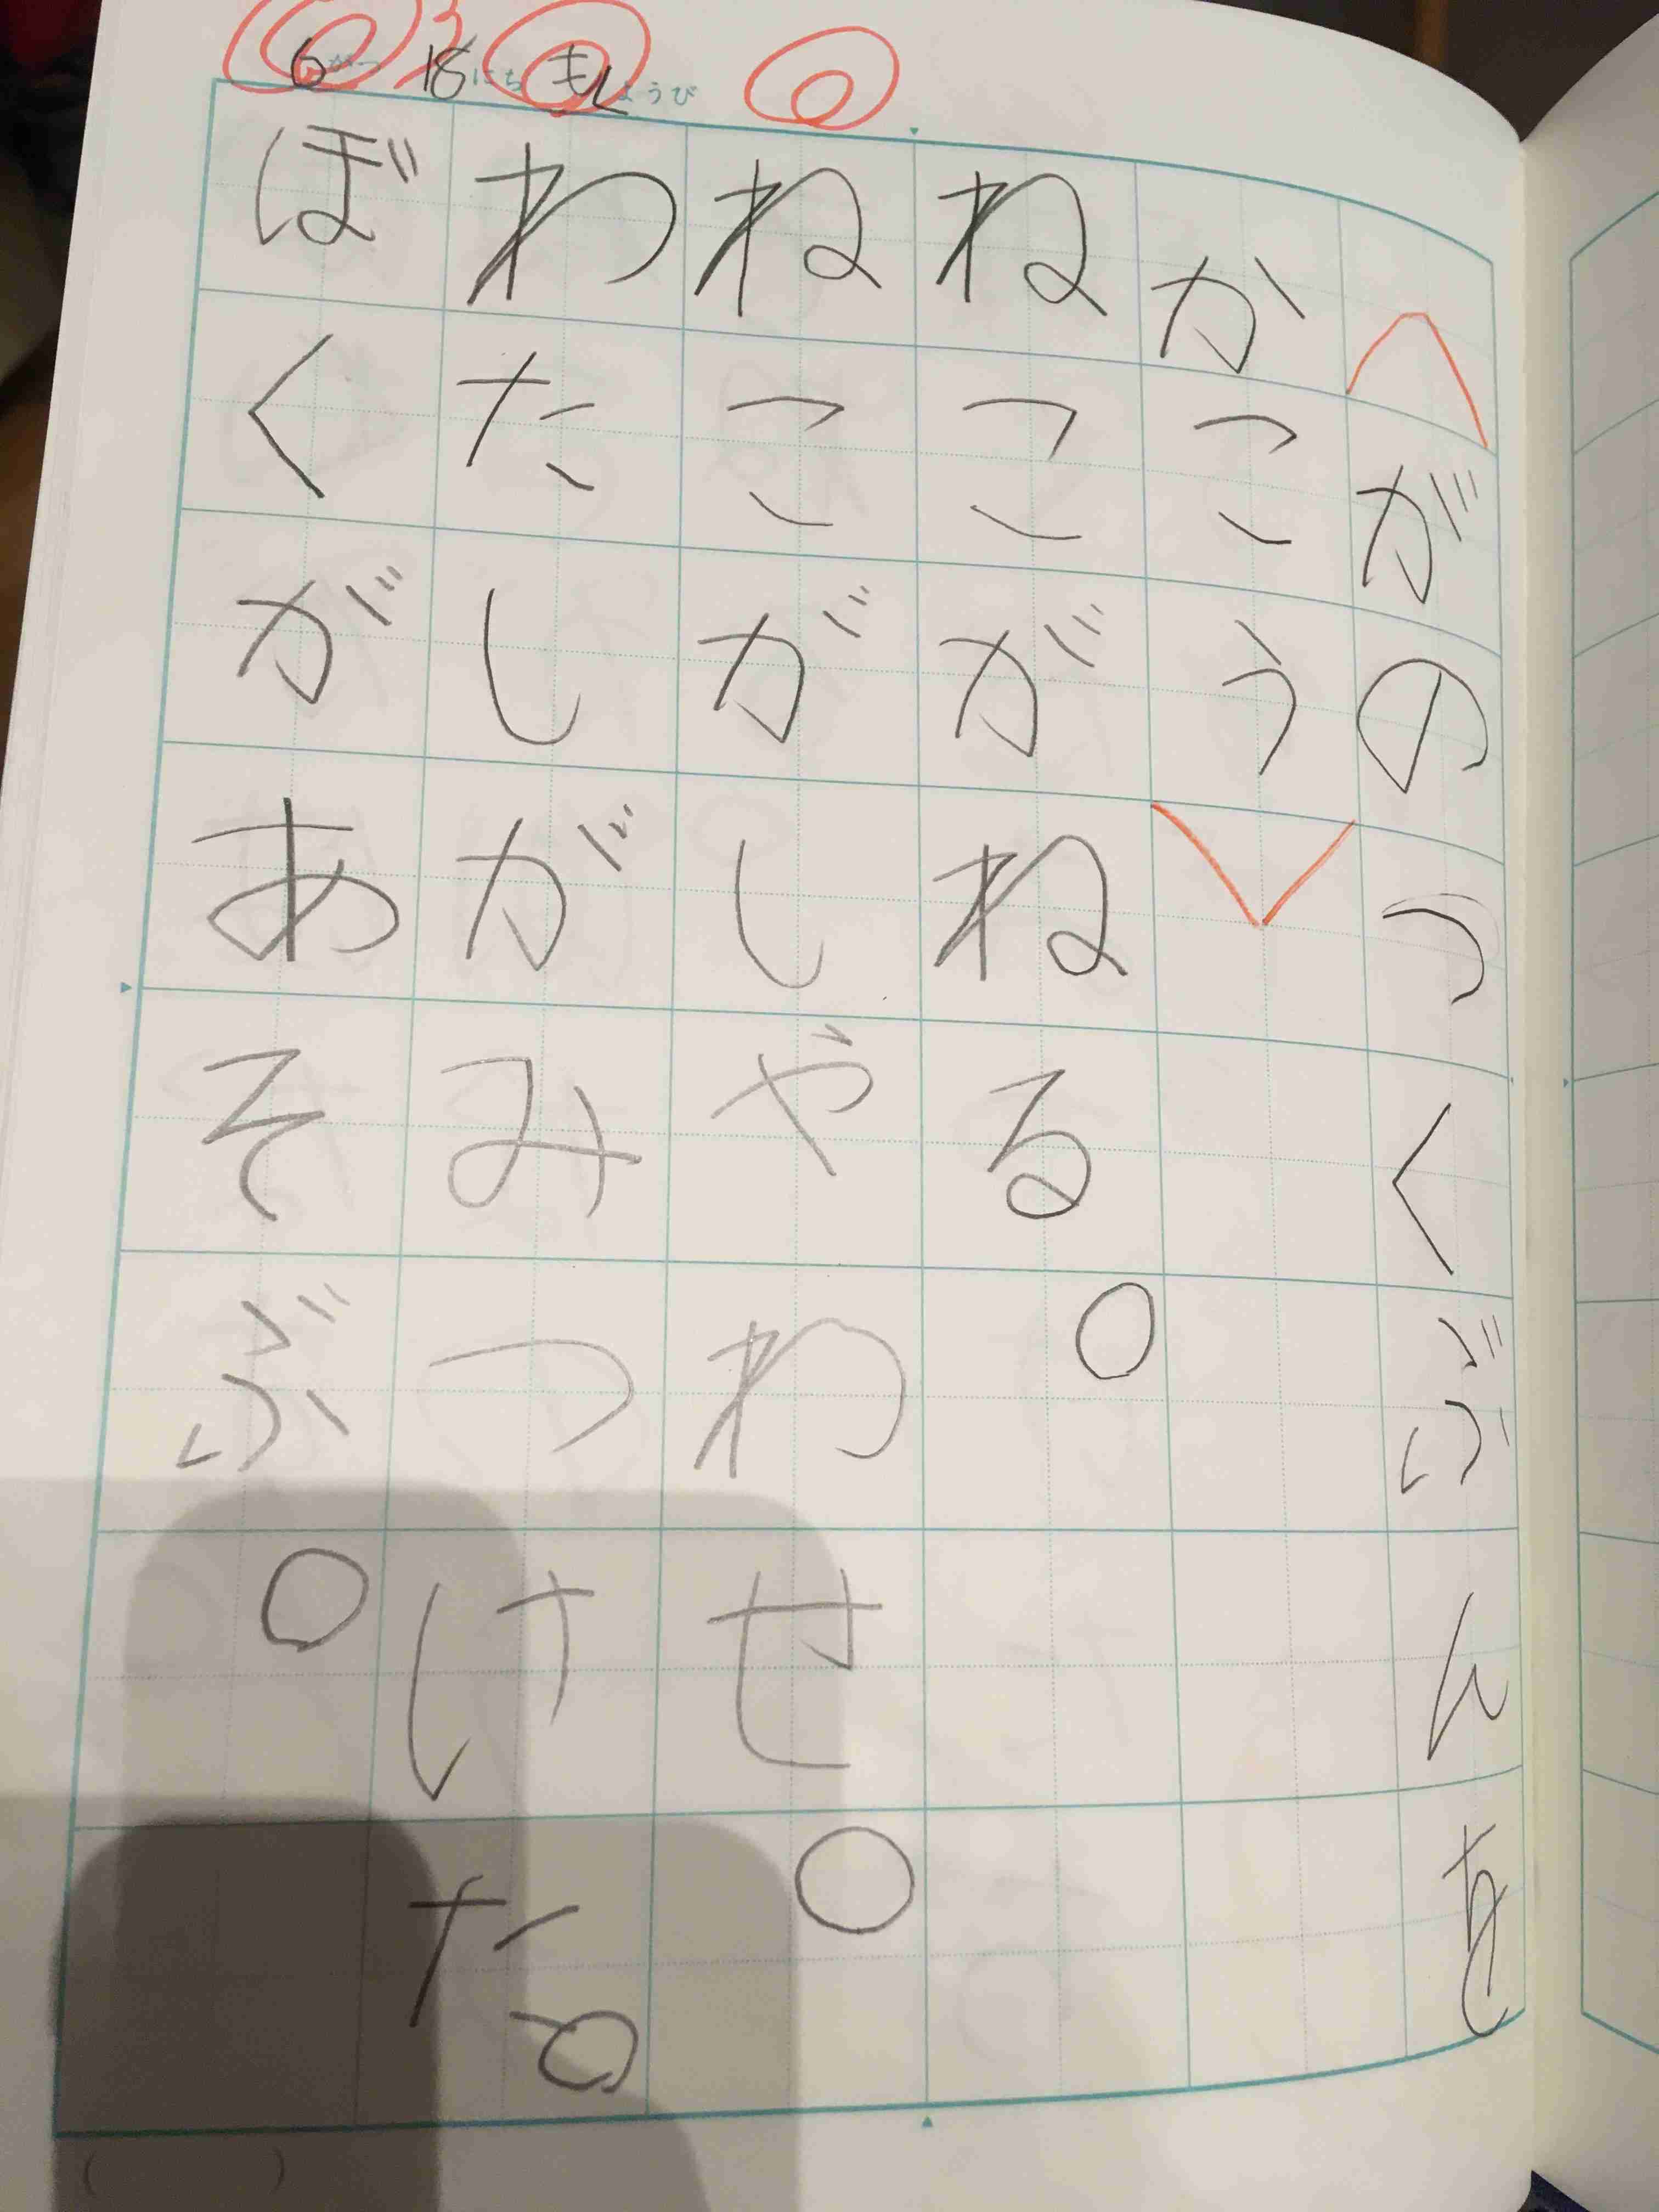 6がつ18にちもくようび
がのつくぶんを
かこう
ねこがねる。
ねこがしやわせ。
わたしがみつけた。
ぼくがあそぶ。